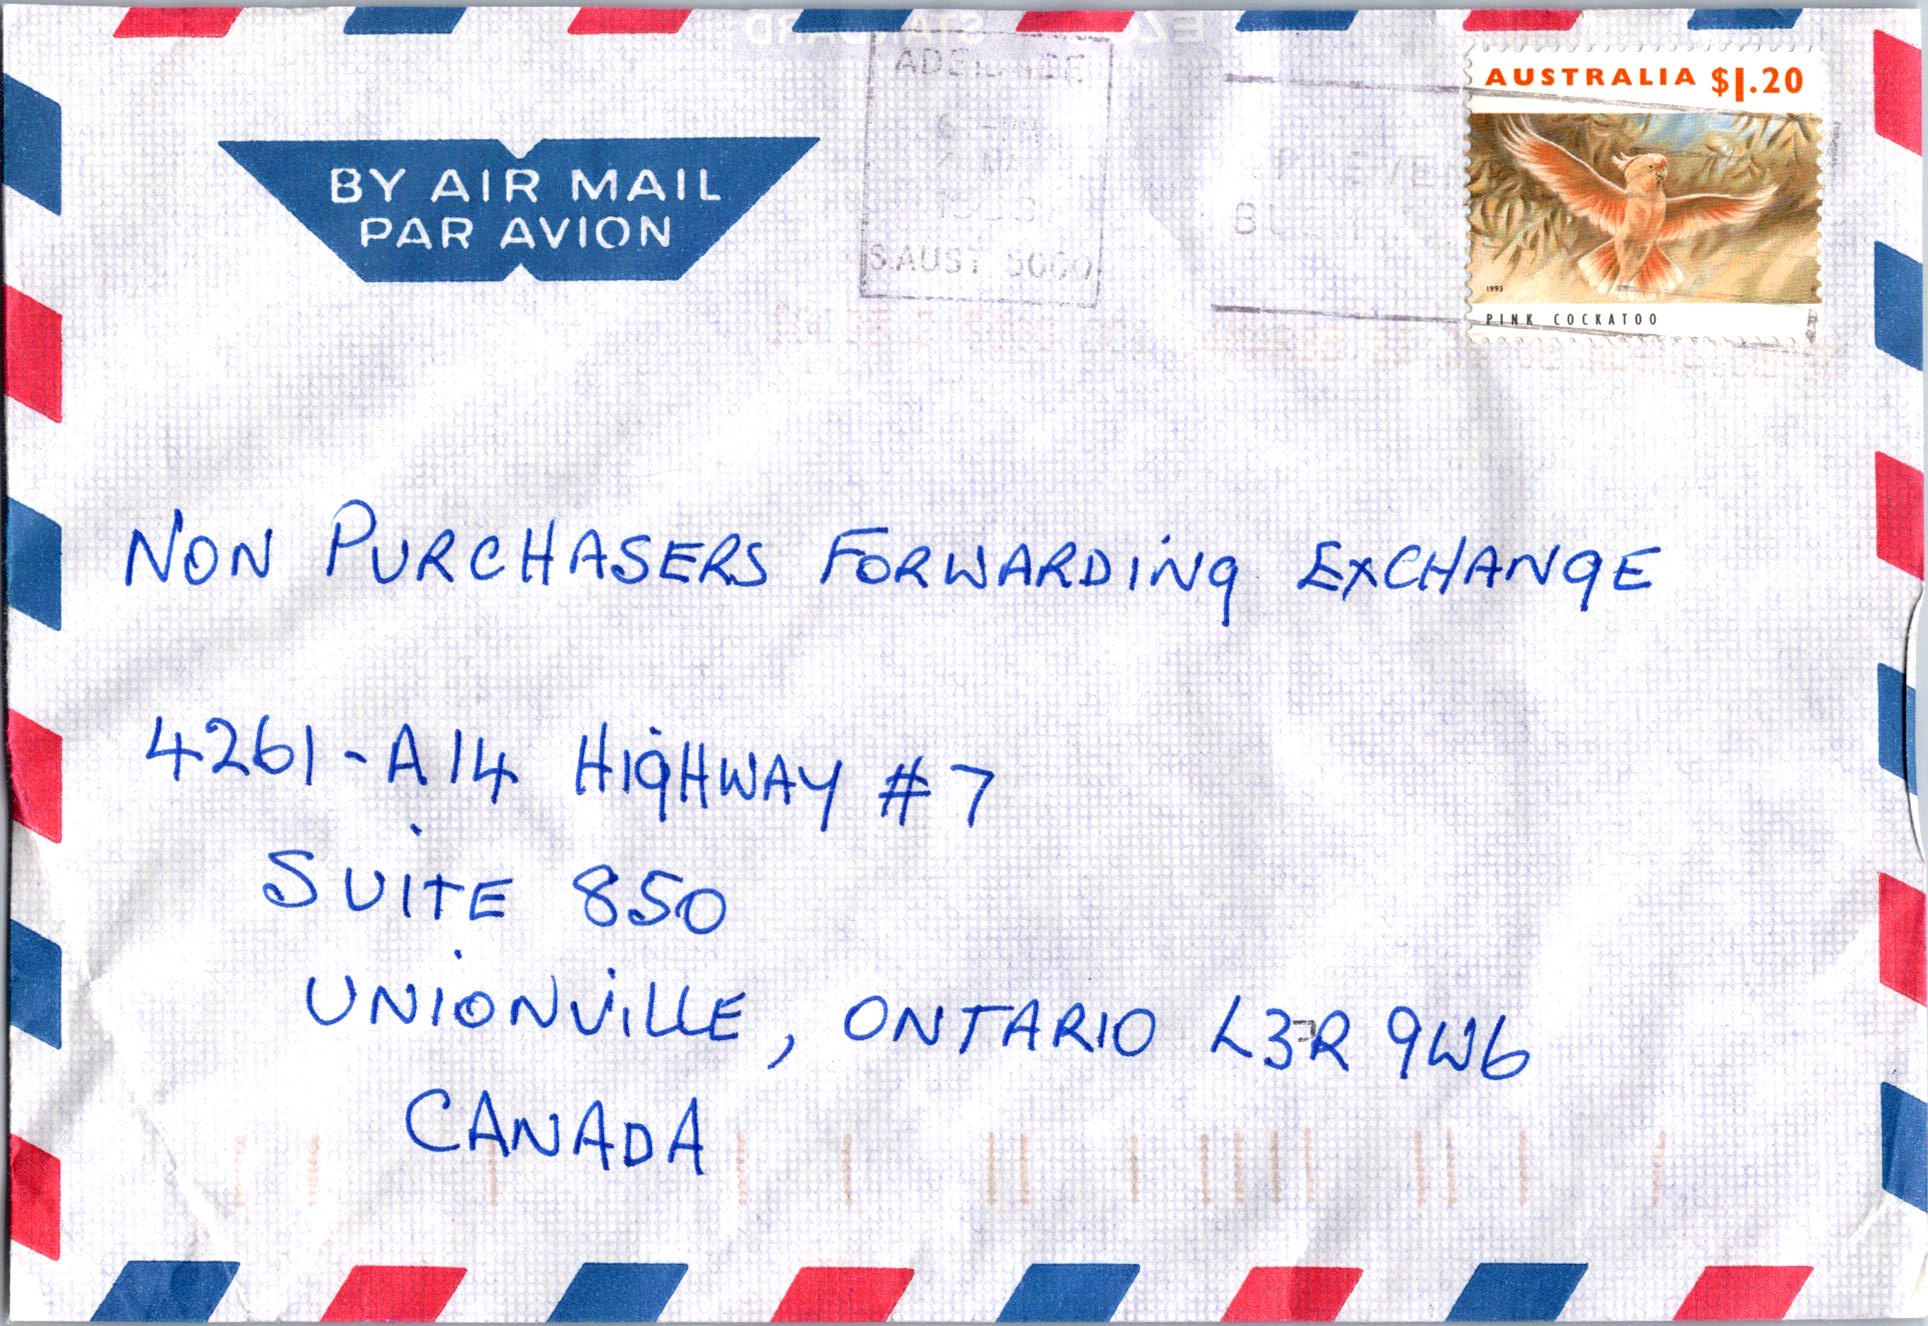 BY AIR MAIL
PAR AVION
S.AUST 5000
AUSTRALIA $1.20
1993
PINK COCKATOO
NON PURCHASERS FORWARDING EXCHANGE
4261-A14 HIGHWAY #7
SUITE 850
UNIONVILLE, ONTARIO L3R 9W6
CANADA